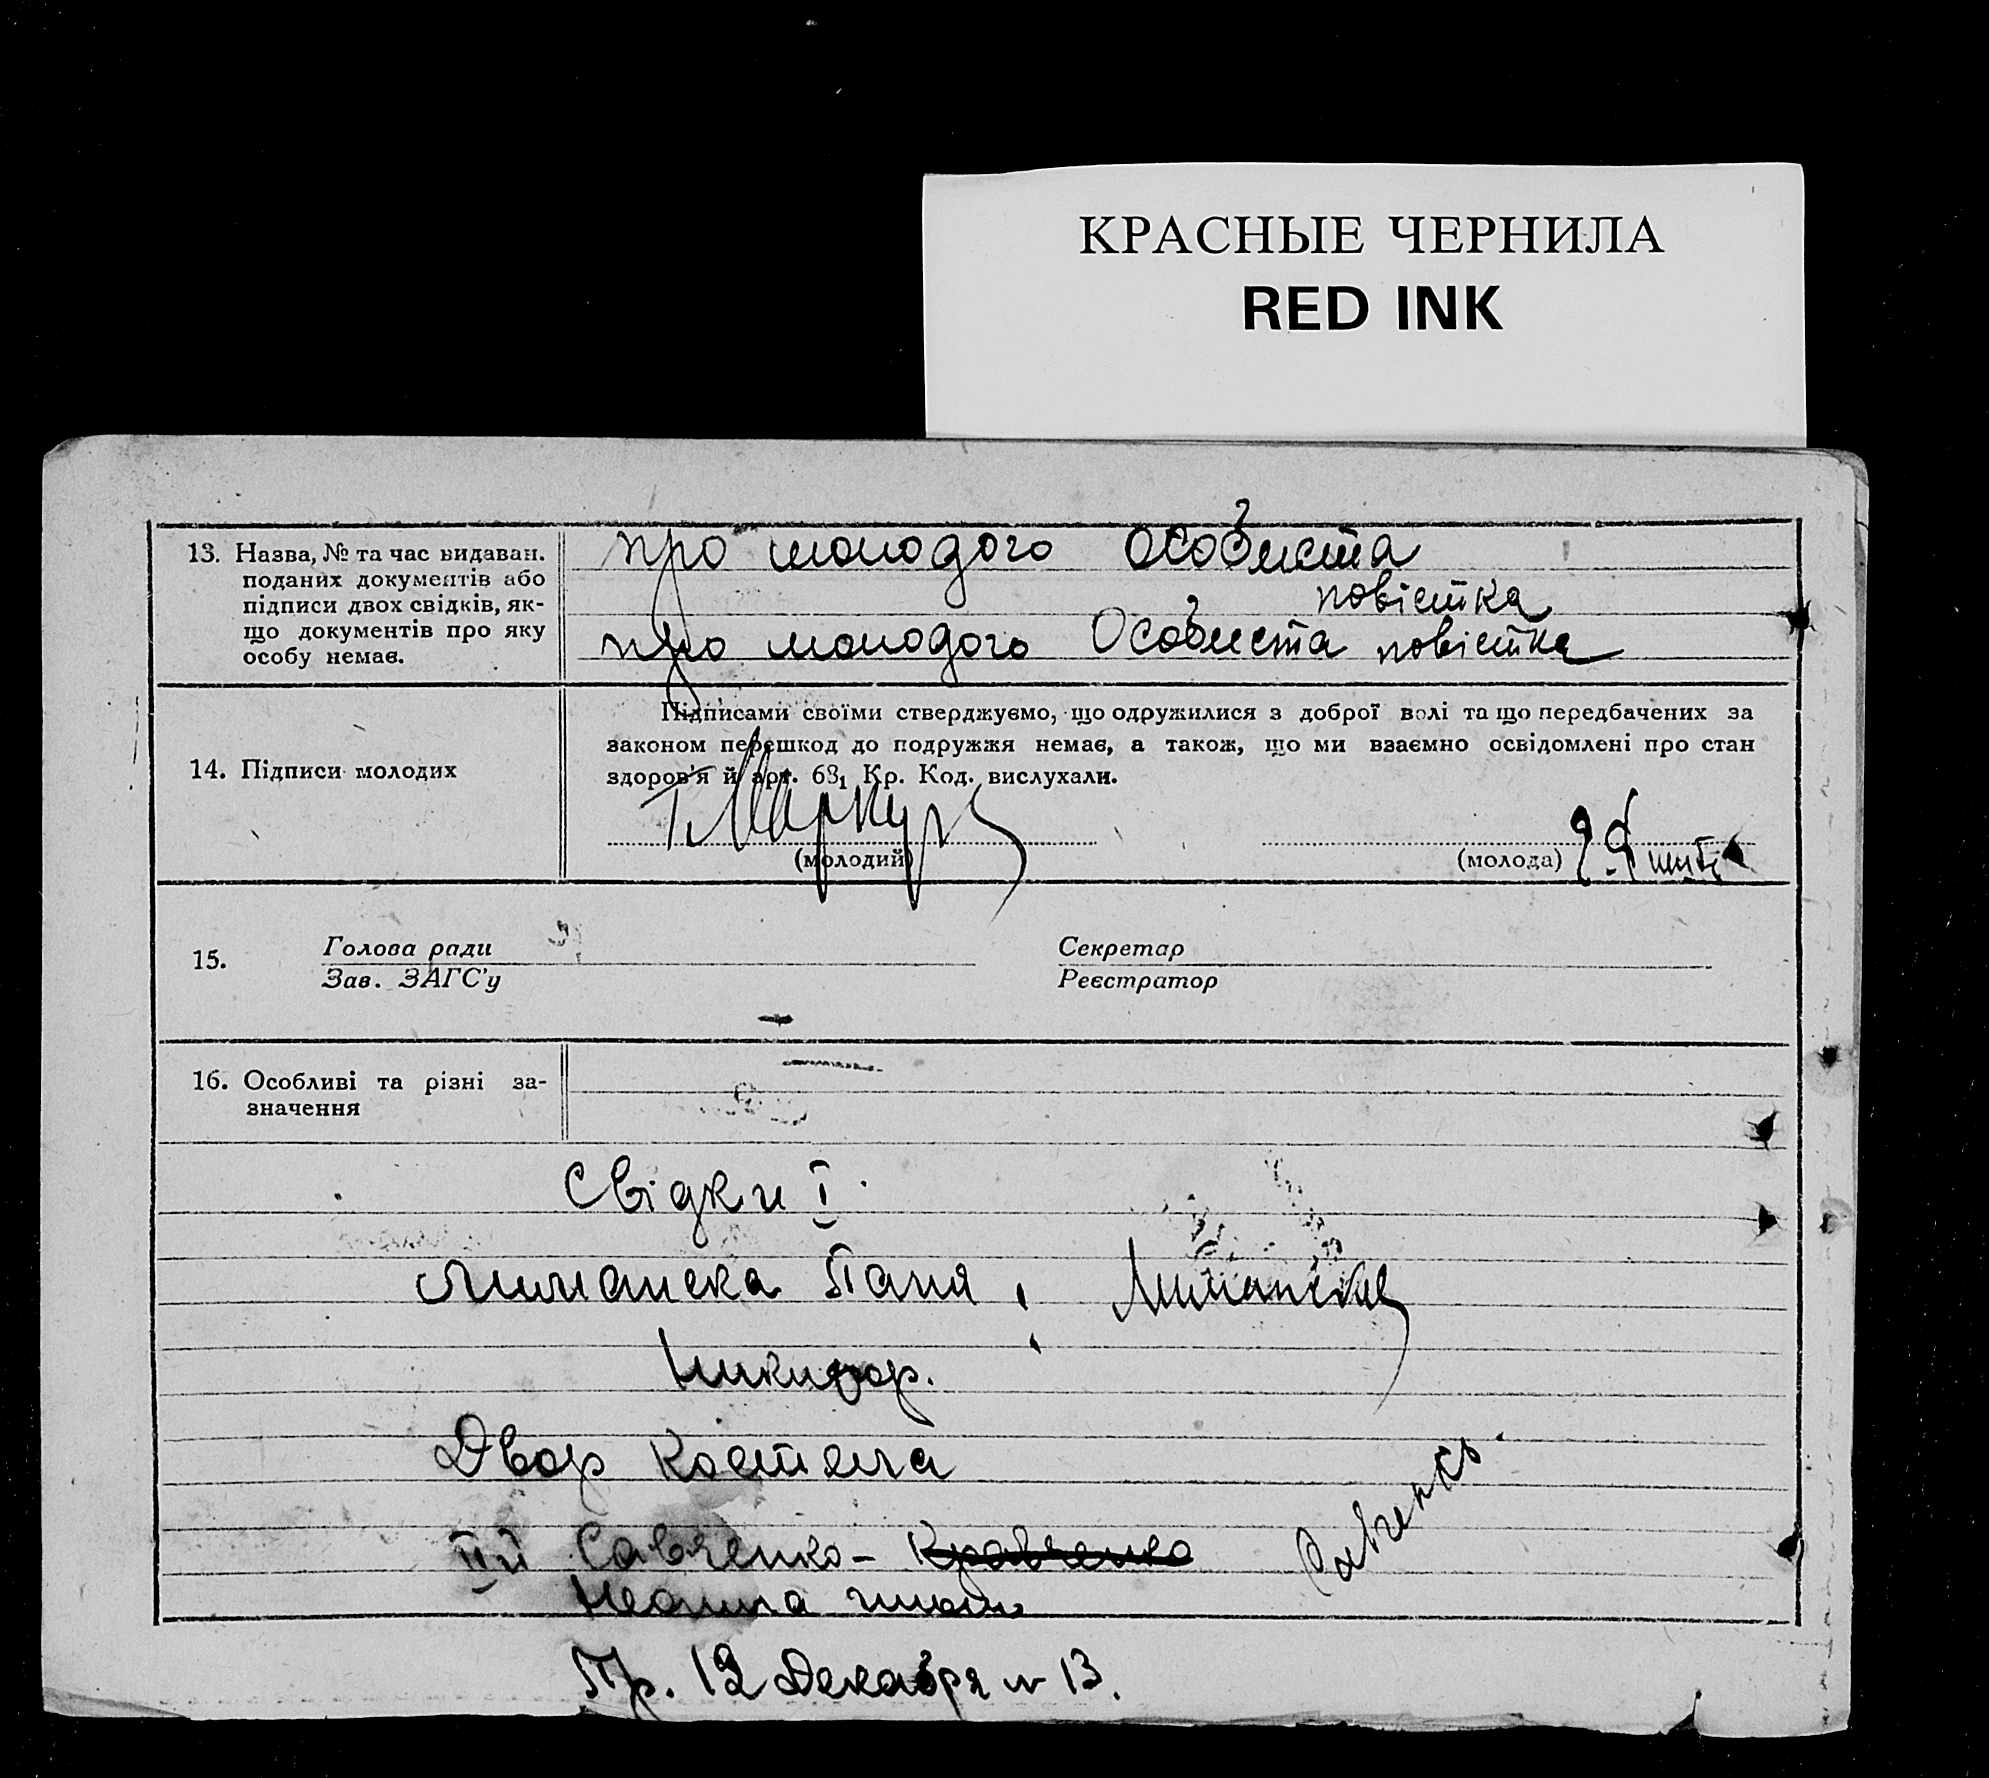 КРАСНЫЕ ЧЕРНИЛА
RED INK
13. Назва, № та час видаван.
поданих документів або
підписи двох свідків, як-
що документів про яку
особу немає.
про молодого Особиста
повістка
про молодого Особиста повістка
14. Підписи молодих
Підписами своїми стверджуємо, що одружилися з доброї волі та що передбачених за
законом перешкод до подружжя немає, а також, що ми взаємно освідомлені про стан
здоров'я й арт. 68₁ Кр. Код. вислухали.
(молодий)
(молода)
15.
Голова ради
Зав. ЗАГС'у
Секретар
Реєстратор
16. Особливі та різні за-
значення
Свідки I
Лиманска Таня,
Никифор.
Двор Костела
IIй Савченко - Кравченко
Савченко
Пр. 12 Декабря № 13.